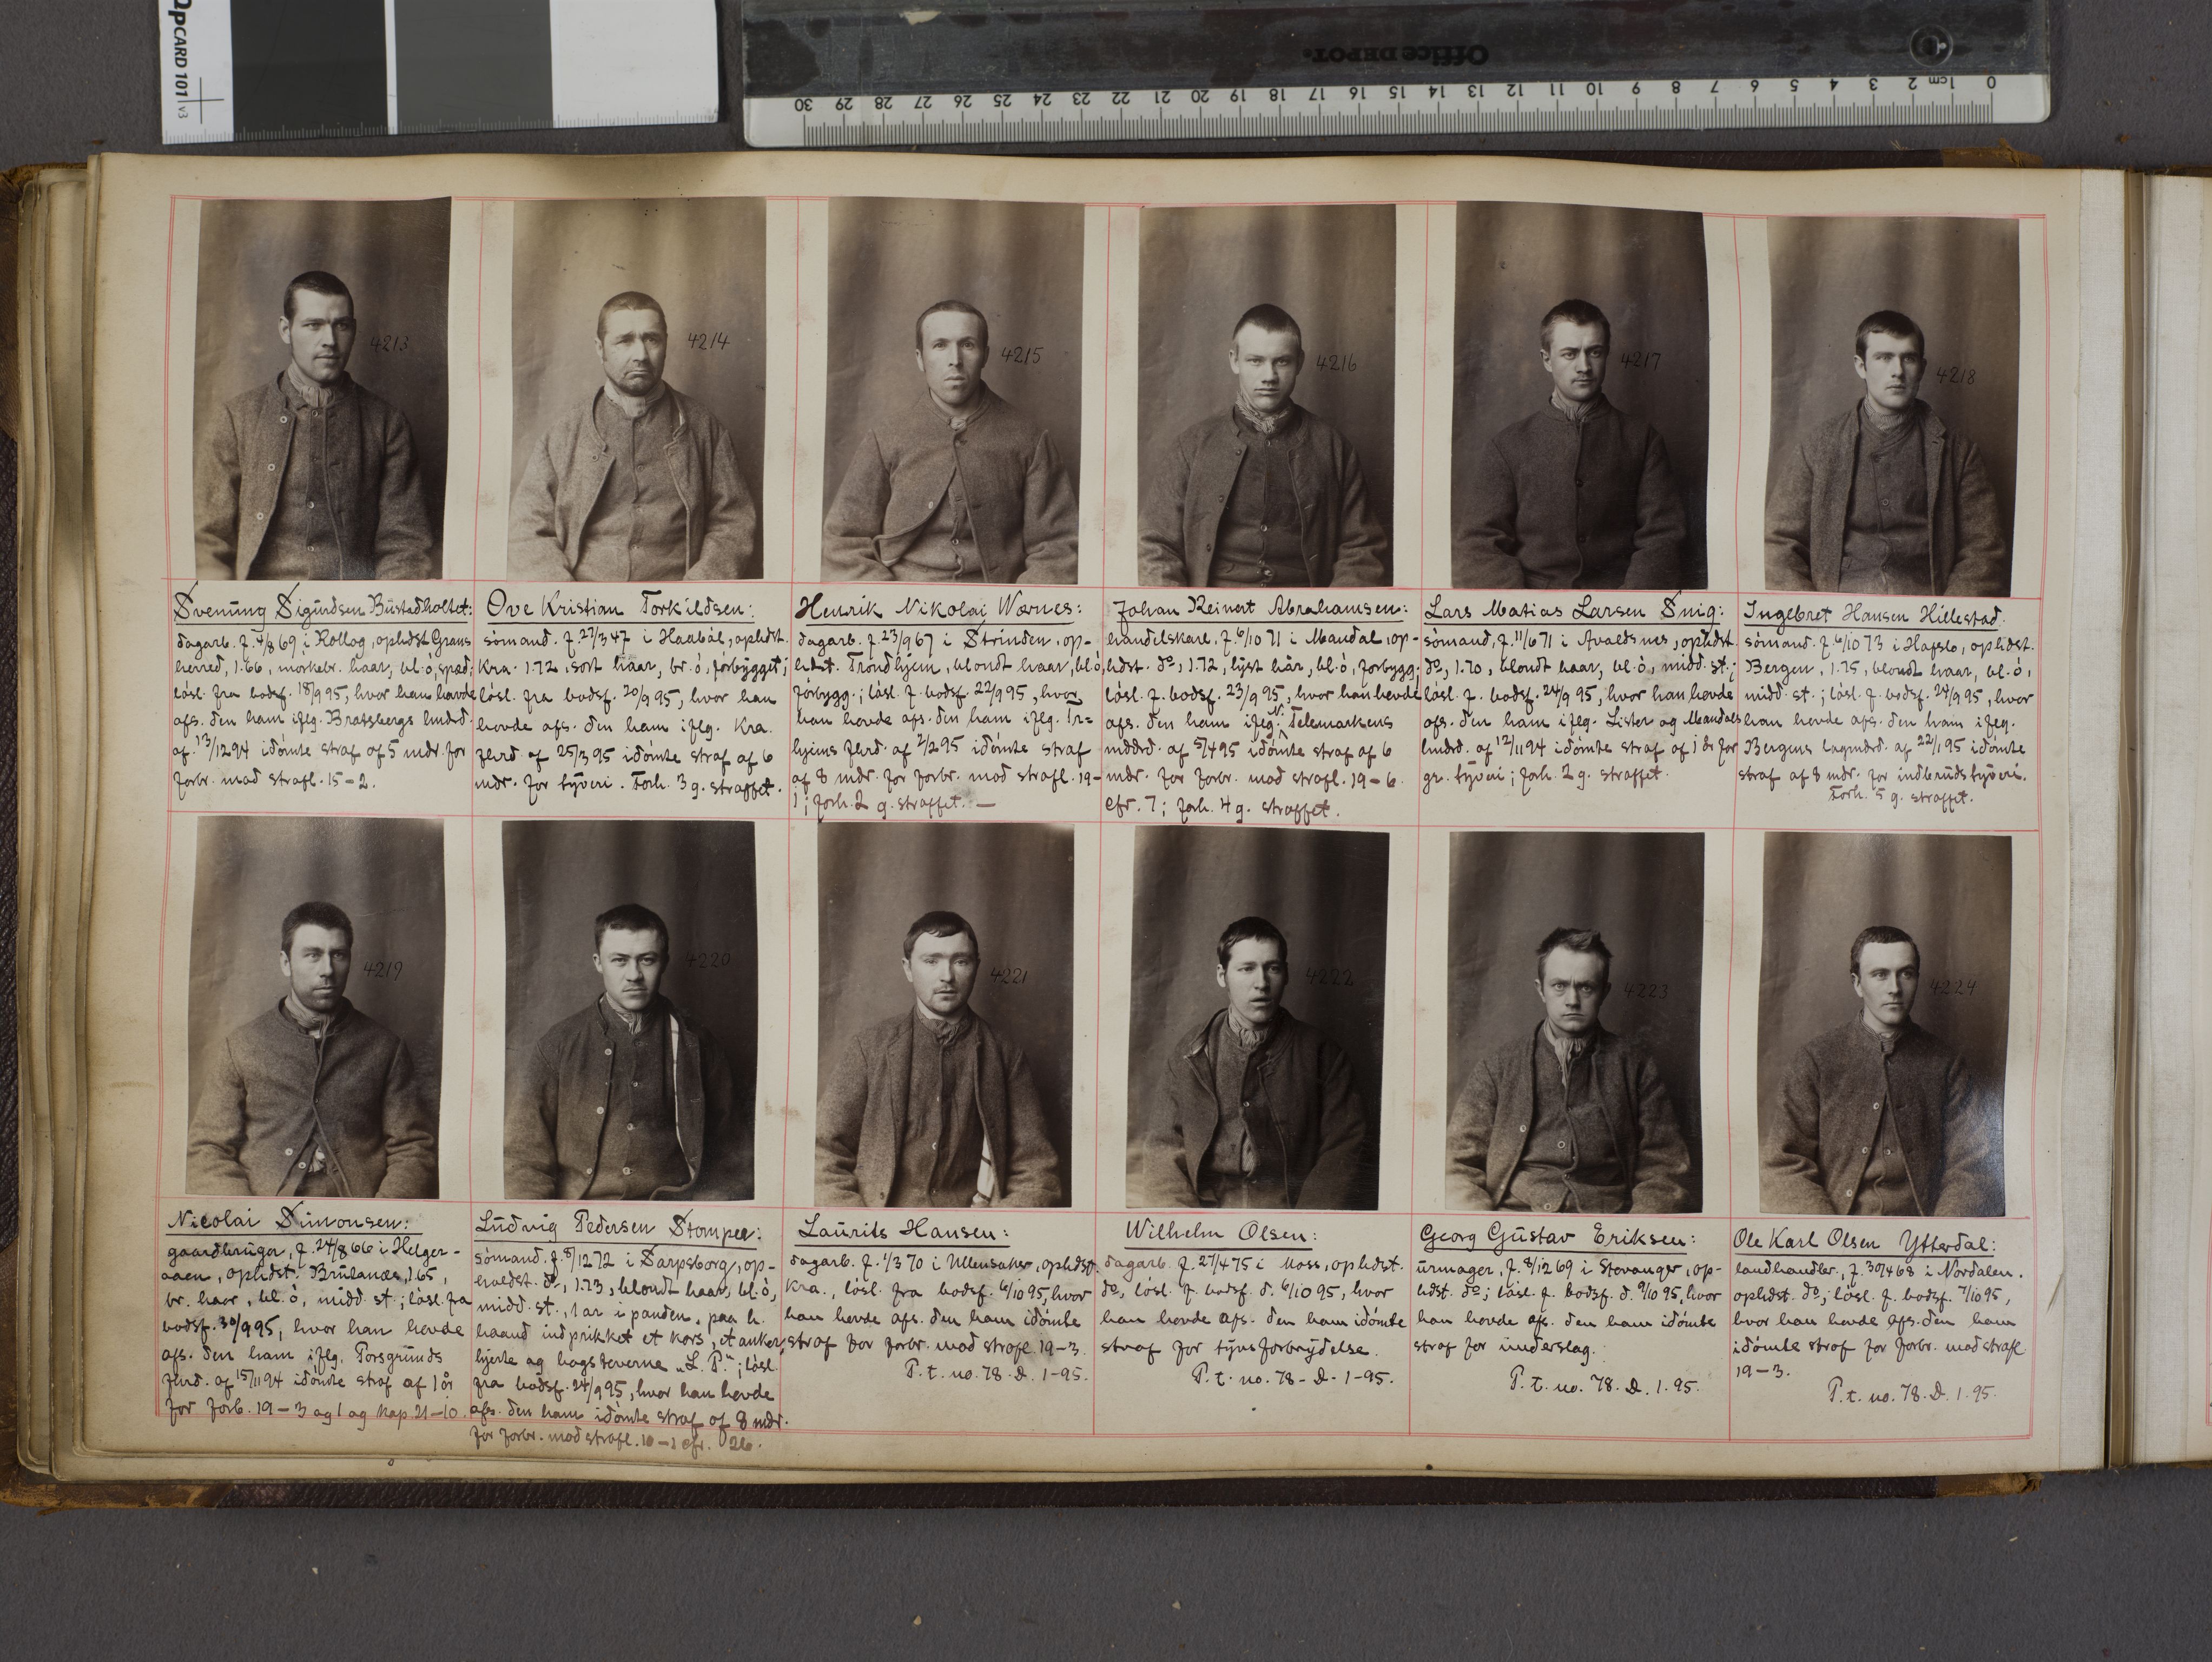 OpCARD 101 v3
Office DEPOT
0 1cm 2 3 4 5 6 7 8 9 10 11 12 13 14 15 16 17 18 19 20 21 22 23 24 25 26 27 28 29 30
4213
4214
4215
4216
4217
4218
Svenung Sigurdsen Bustadholtet:
dagarb. f. 4/8 69 i Rollag, opholdst Grans
herred, 1.66, mørkebr. haar, bl. ö, spæd;
løsl. fra bodsf. 18/9 95, hvor han havde
afs. den ham iflg. Bratsbergs lmdrd.
af 13/12 94 idömte straf af 5 mdr. for
forbr. mod strafl. 15-2.
Ove Kristian Torkildsen:
sömand. f. 27/3 47 i Haaböl, opholdst.
Kra. 1.72, sort haar, br. ö, förbygget;
lösl. fra bodsf. 20/9 95, hvor han
havde afs. den ham iflg. Kra.
fhrd af 25/3 95 idömte straf af 6
mdr. for tyveri. Forh. 3 g. straffet.
Henrik Nikolai Wærnes:
dagarb. f. 23/9 67 i Strinden, op-
hldst. Trondhjem, blondt haar, bl. ö,
förbygg.; lösl. f. bodsf. 22/9 95, hvor
han havde afs. den ham iflg. Tr=
hjems fhrd. af 2/2 95 idömte straf
af 8 mdr. for forbr. mod strafl. 19-
1; forh. 2 g. straffet. —
Johan Reinert Abrahamsen:
handelskarl, f. 6/10 71 i Mandal, op-
hldst. do, 1.72, lyst hår, bl. ö, forbygg;
lösl. f. bodsf. 23/9 95, hvor han havde
afs. den ham iflg. N. Telemarkens
mddrd. af 5/4 95 idömte straf af 6
mdr. for forbr. mod strafl. 19-6
cfr. 7; forh. 4 g. straffet.
Lars Matias Larsen Snig:
sömand, f. 11/6 71 i Avaldsnes, opholdst.
do, 1.70, blondt haar, bl. ö, midd. st.;
lösl. f. bodsf. 24/9 95, hvor han havde
afs. den ham iflg. Lister og Mandals
lmdrd. af 12/11 94 idömte straf af 1 år for
gr. tyveri; forh. 2 g. straffet.
Ingebret Hansen Hillestad.
sömand. f. 6/10 73 i Hafslo, opholdst.
Bergen, 1.75, blondt haar, bl. ö,
midd. st.; lösl. f. bodsf. 24/9 95, hvor
han havde afs. den ham iflg.
Bergens lagmdrd. af 22/1 95 idömte
straf af 8 mdr. for indbrudstyveri.
Forh. 5 g. straffet.
4219
4220
4221
4222
4223
4224
Nicolai Simonsen:
gaardbruger, f. 24/8 66 i Helger-
aaen, opholdst. Brulanæs, 1.65,
br. haar, bl. ö, midd. st.; lösl. fra
bodsf. 30/9 95, hvor han havde
afs. den ham iflg. Porsgrunds
fhrd. af 15/11 94 idömte straf af 1 år
for forb. 19-3 og 1 og Kap 21-10.
Ludvig Pedersen Stompen:
sömand. f. 8/12 72 i Sarpsborg, op-
holdst. do, 1.73, blondt haar, bl. ö,
midd. st., 1 ar i panden, paa h.
haand indprikket et kors, et anker,
hjerte og bogstaverne „L. P."; lösl.
fra bodsf. 24/9 95, hvor han havde
afs. den ham idömte straf af 8 mdr.
for forbr. mod strafl. 10-1 cfr. 26.
Laurits Hansen:
dagarb. f. 1/3 70 i Ullensaker, opholdst.
Kra., lösl. fra bodsf. 6/10 95, hvor
han havde afs. den ham idömte
straf for forbr. mod strafl. 19-3.
P. t. no. 78. D. 1-95.
Wilhelm Olsen:
dagarb. f. 27/4 75 i Moss, opholdst.
do, lösl. f. bodsf. d. 6/10 95, hvor
han havde afs. den ham idömte
straf for tyvsforbrydelse.
P. t. no. 78 - D. 1-95.
Georg Gustav Eriksen:
urmager, f. 8/12 69 i Stavanger, op-
hldst. do; lösl. f. bodsf. d. 9/10 95, hvor
han havde afs. den ham idömte
straf for underslag.
P. t. no. 78. D. 1. 95.
Ole Karl Olsen Ytterdal:
landhandler, f. 30/4 68 i Nordalen.
opholdst. do; lösl. f. bodsf. 7/10 95,
hvor han havde afs. den ham
idömte straf for forbr. mod strafl.
19-3.
P. t. no. 78. D. 1. 95.